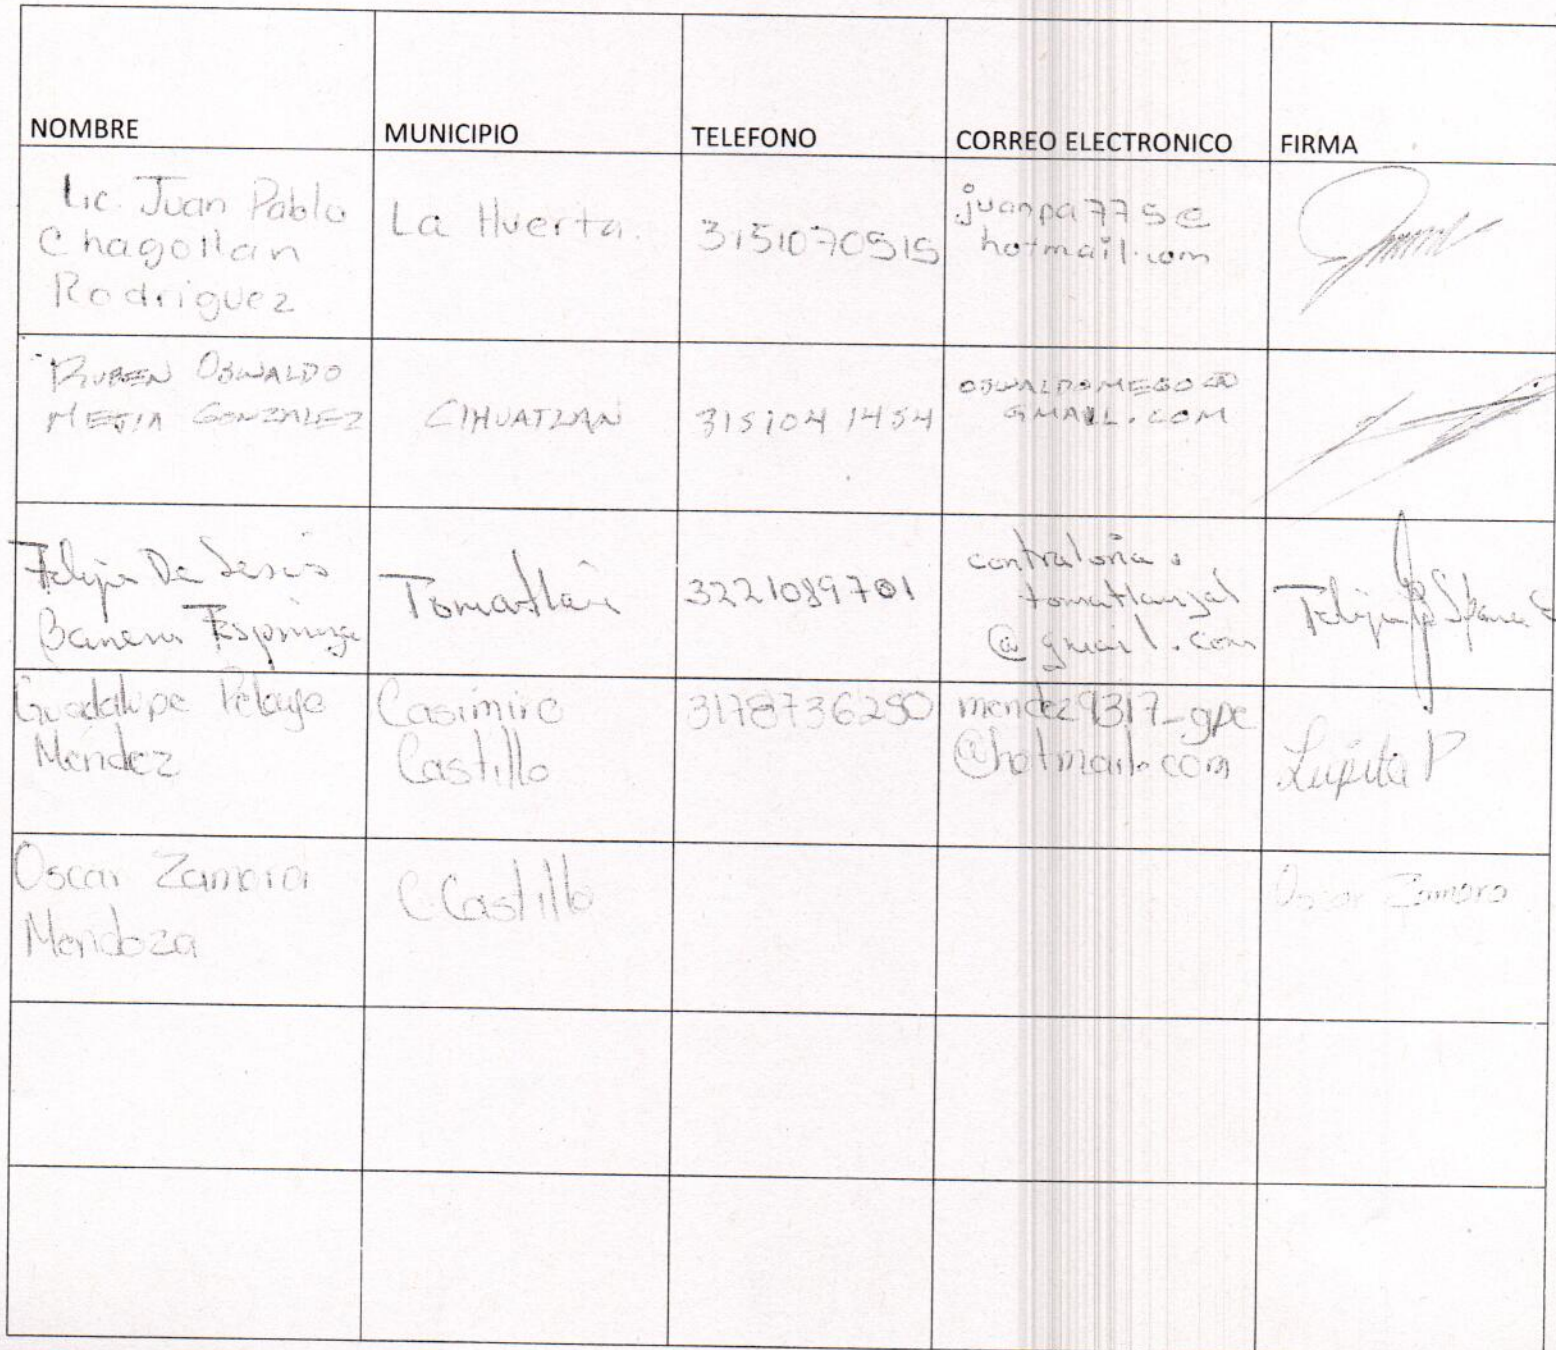 NOMBRE MUNICIPIO TELEFONO CORREO ELECTRONICO FIRMA
Lic. Juan Pablo
Chagollan
Rodriguez
La Huerta.
3151070515
juanpa775@
hotmail.com
RUBEN OSWALDO
MEJIA GONZALEZ
CIHUATLAN
315 104 1454
OSWALDOMEGO@
GMAIL.COM
Felipe De Jesús
Espinoza
Tomatlán
3221089701
contraloria.
tomatlanjal
@gmail.com
Guadalupe Pelayo
Mendez
Casimiro
Castillo
3178736250
mendez9317_gpe
@hotmail.com
Lupita P
Oscar Zamora
Mendoza
C. Castillo
Oscar Zamora